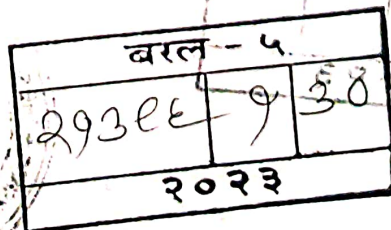 बरल - ५
२१३९६ १ ३०
२०२३